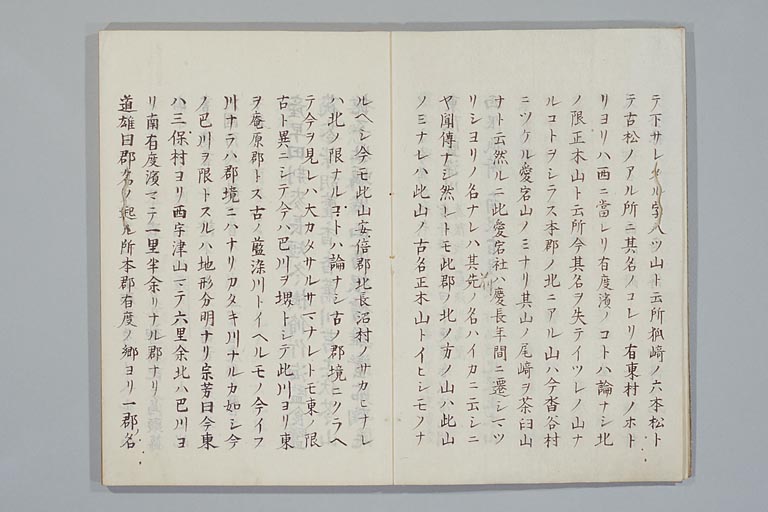 テ下サレタル字八ツ山ト云所狐崎ノ六本松ト
テ古松ノアル所ニ其名ノコレリ有東村ノホト
リヨリハ西ニ當レリ有度濱ノコトハ論ナシ北
ノ限正木山ト云所今其名ヲ失テイツレノ山ナ
ルコトヲシラス本郡ノ北ニアル山ハ今沓谷村
ニツケル愛宕山ノミナリ其山ノ尾崎ヲ茶臼山
ナト云然ルニ此愛宕社ハ慶長年間ニ遷シマツ
リショリノ名ナレハ其前ノ名ハイカニ云シニ
ヤ聞傳ナシ然レトモ此郡ノ北ノ方ノ山ハ此山
ノミナレハ此山ノ古名正木山トイヒシモノナ
ルヘシ今モ此山安倍郡北長沼村ノサカヒナレ
ハ北ノ限ナルコトハ論ナシ古ノ郡境ニツラヘ
テ今ヲ見レハ大カタサルサマナレトモ東ノ限
古ト異ニシテ今ハ巴川ヲ堺トシテ此川ヨリ東
ヲ庵原郡トス古ノ藍染川トイヘルモノ今イフ
川ナラハ郡境ニハナリカタキ川ナルカ如シ今
ノ巴川ヲ限トスルハ地形分明ナリ宗芳曰今東
ハ三保村ヨリ西宇津山マテ六里余北ハ巴川ヨ
リ南有度濱マテ一里半余リナル郡ナリ
道雄曰郡名ノ起ル所本郡有度ノ郷ヨリ一郡名